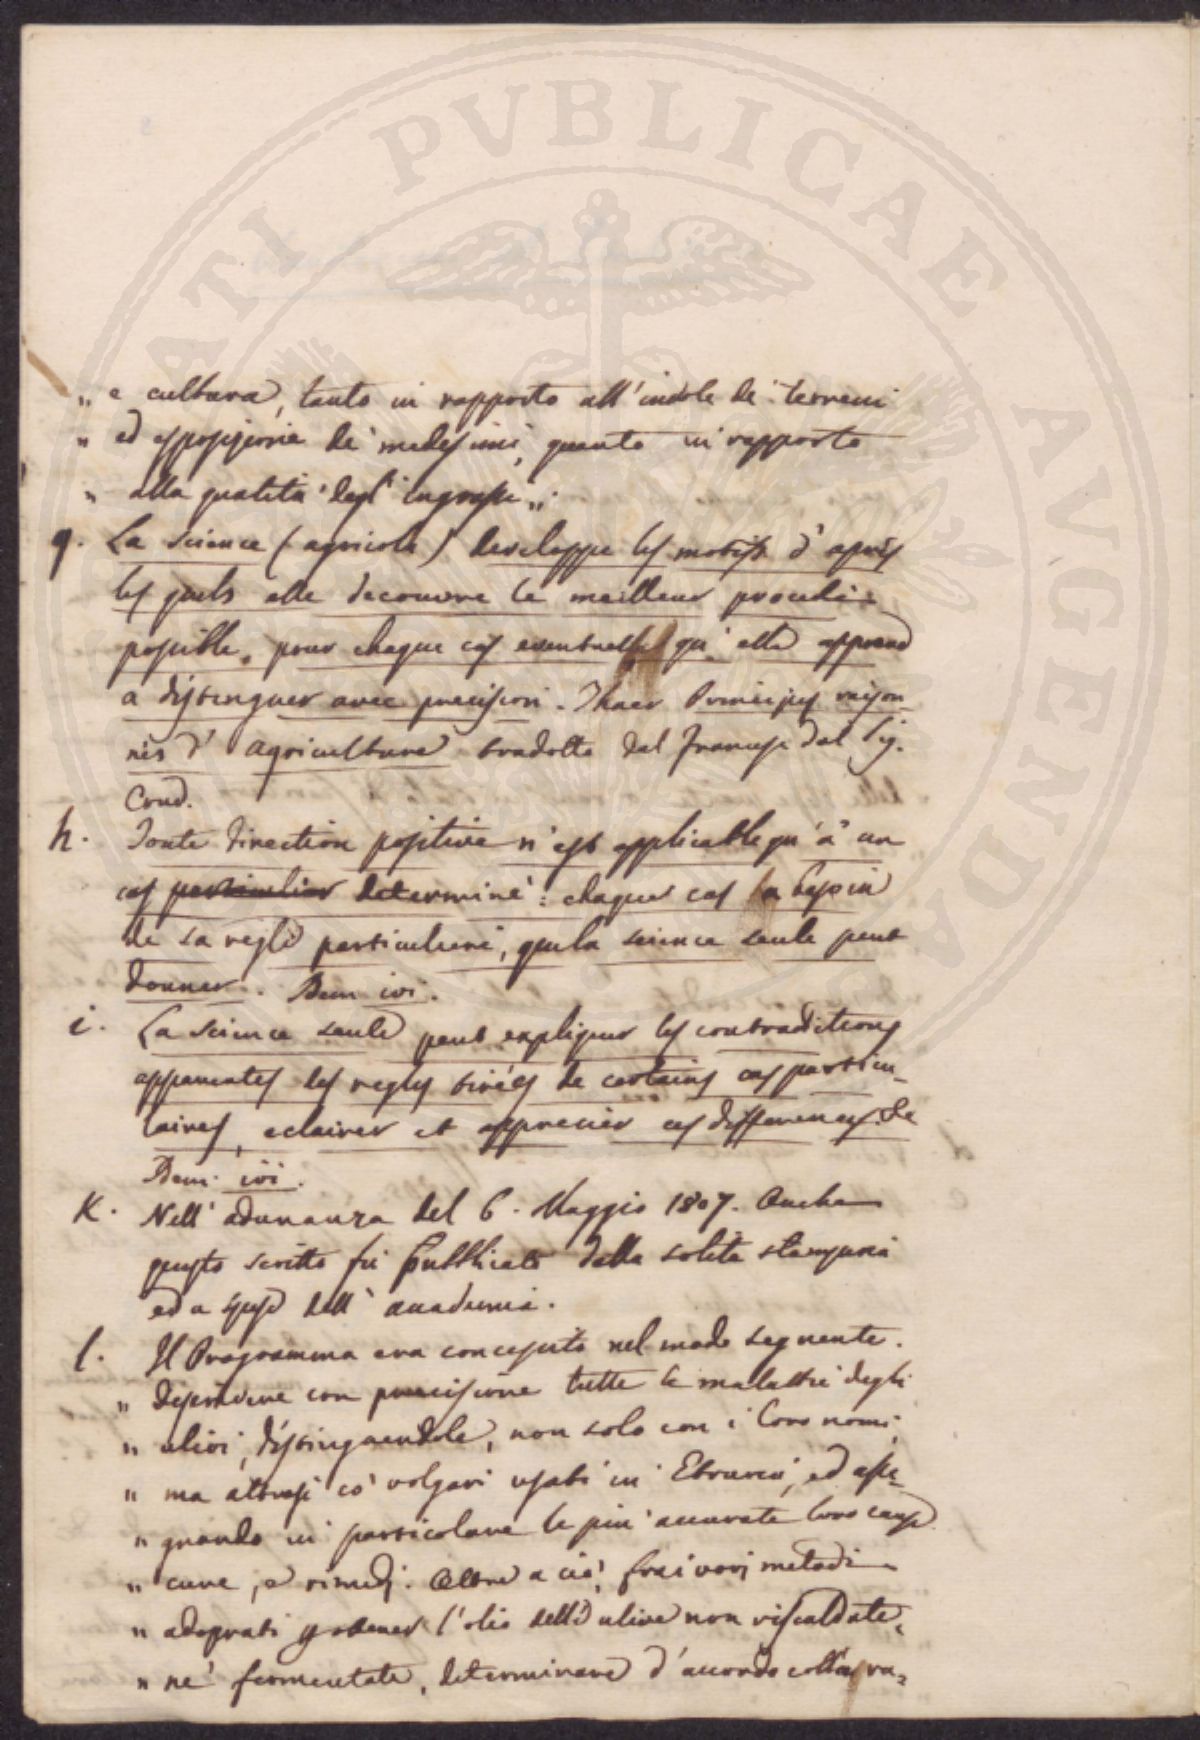 PVBLICAE AVGENDA
„ e cultura, tanto in rapporto all'indole de' terreni
„ ed esposizione de' medesimi, quanto in rapporto
„ alla qualità degl'ingrassi„.
g. La Science (agricole) developpe les motifs d'après
les quels elle decouvre le meilleur procedé
possible, pour chaque cas eventuelle qu'elle apprend
a distinguer avec precision. Thaer Principes raison-
nés d'agriculture tradotto dal Francese dal Sig.
Crud.
h. Toute direction positive n'est applicable qu'à un
cas particulier determiné: chaque cas a besoin
de sa regle particuliere, que la science seule peut
donner. Idem ivi.
i. La Science seule peut expliquer les contradictions
apparentes des regles tirées de certains cas particu-
laires, eclairer et apprecier ces differences. &c
Idem ivi.
K. Nell'adunanza del 6. Maggio 1807. Anche
questo scritto fu pubblicato dalla solita stamperia
ed a spese dell'accademia.
l. Il Programma era concepito nel modo seguente.
„ Descrivere con precisione tutte le malattie degli
„ ulivi, distinguendole, non solo con i loro nomi,
„ ma altresì co' volgari usati in Etruria, ed asse-
„ gnando in particolare le più accurate loro cause
„ cure, e rimedj. Oltre a ciò, fra i varj metodi
„ adoprati p ottener l'olio dell'ulive non riscaldate,
„ nè fermentate, determinare d'accordo colla ra-